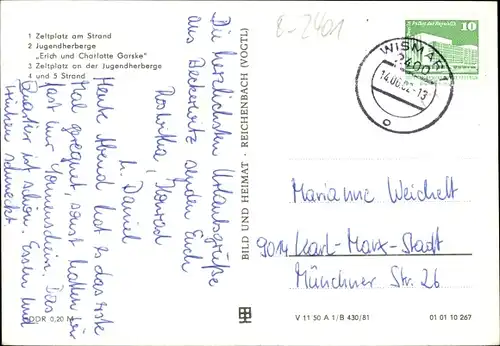 1 Zeltplatz am Strand
2 Jugendherberge
„Erich und Charlotte Garske"
3 Zeltplatz an der Jugendherberge
4 und 5 Strand
8-2401
Die herzlichsten Urlaubsgrüße
aus Beckerwitz senden Euch
Roswitha, Konrad
u. Daniel
Heute Abend hat es das erste
Mal geregnet, sonst hatten wir
fast nur Sonnenschein. Das
Quartier ist schön. Essen und
Trinken schmeckt.
DDR 0,20 M
BILD UND HEIMAT · REICHENBACH (VOGTL)
10
WISMAR 1
2400
14.06.82-13
Marianne Weichelt
9014 Karl-Marx-Stadt
Münchner Str. 26
V 11 50 A 1/B 430/81
01 01 10 267